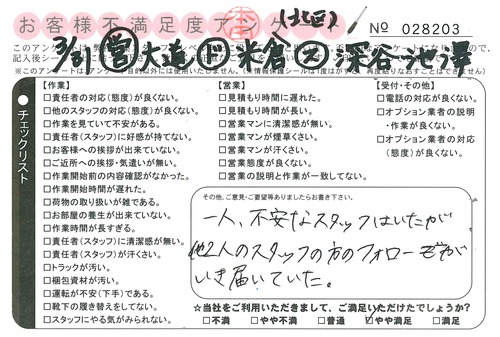 お客様不満足度アンケート
№ 028203
3/31 営 大道 ド 米倉 ② 深谷 池澤
チェックリスト
【作業】
□責任者の対応(態度)が良くない。
□他のスタッフの対応(態度)が良くない。
□作業を見ていて不安がある。
□責任者(スタッフ)に好感が持てない。
□お客様への挨拶が出来ていない。
□ご近所への挨拶・気遣いが無い。
□作業開始前の内容確認がなかった。
□作業開始時間が遅れた。
□荷物の取り扱いが雑である。
□お部屋の養生が出来ていない。
□作業時間が長すぎる。
□責任者(スタッフ)に清潔感が無い。
□責任者(スタッフ)が汗さい。
□トラックが汚い。
□梱包資材が汚い。
□運転が不安(下手)である。
□靴下の履き替えをしてない。
□スタッフにやる気がみられない。
【営業】
□見積もり時間に遅れた。
□見積もり時間が長い。
□営業マンに清潔感が無い。
□営業マンが煙草くさい。
□営業マンが汗さい。
□営業態度が良くない。
□営業の説明と作業が一致してない。
【受付・その他】
□電話の対応が良くない。
□オプション業者の説明
・作業が良くない。
□オプション業者の対応
(態度)が良くない。
その他、ご意見・ご要望等ありましたらお書き下さい。
一人、不安なスタッフはいたが
他2人のスタッフの方のフォローが
いき届いていた。
☆当社をご利用いただきまして、ご満足いただけたでしょうか?
□不満 □やや不満 □普通 ☑やや満足 □満足